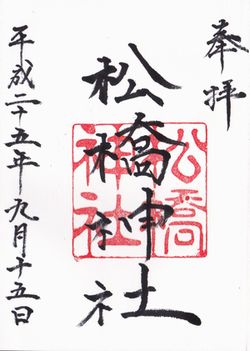 奉拝
松橋神社
公喬
神社
平成二十五年九月十五日